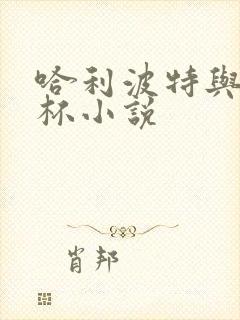 哈利波特與
杯小說
肖邦